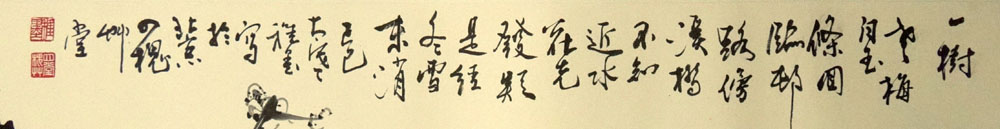 一樹
寒梅
白玉
條迥
臨邨
路傍
溪橋
不知
近水
花先
發疑
是經
冬雪
未消
己巳
寫
於
艸
堂